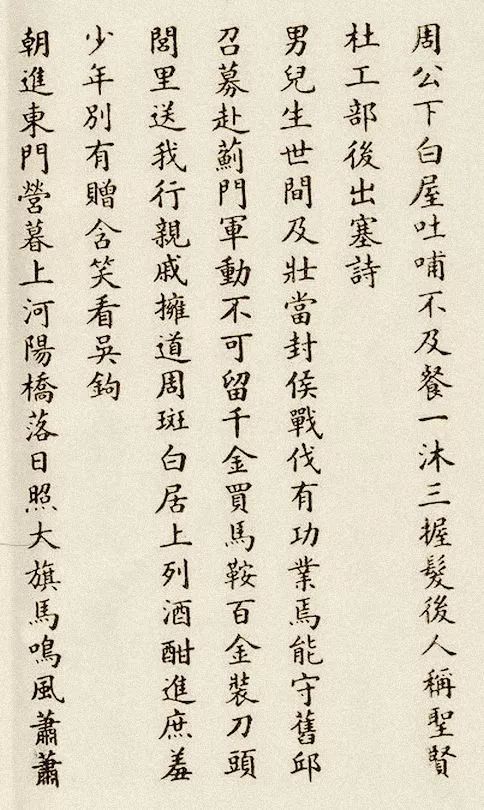 周公下白屋吐哺不及餐一沐三握髮後人稱聖賢
杜工部後出塞詩
男兒生世間及壯當封侯戰伐有功業焉能守舊邱
召募赴薊門軍動不可留千金買馬鞍百金裝刀頭
閭里送我行親戚擁道周斑白居上列酒酣進庶羞
少年別有贈含笑看吳鉤
朝進東門營暮上河陽橋落日照大旗馬鳴風蕭蕭